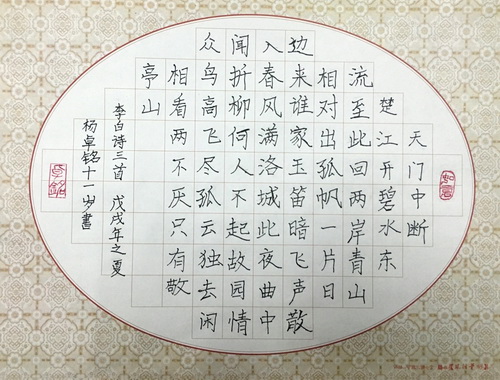 天门中断
楚江开碧水东
流至此回两岸青山
相对出孤帆一片日
边来谁家玉笛暗飞声散
入春风满洛城此夜曲中
闻拼柳何人不起故园情
众鸟高飞尽孤云独去闲
相看两不厌只有敬
亭山
李白诗三首 戊戌年之夏
杨卓铭十一岁書
卓銘